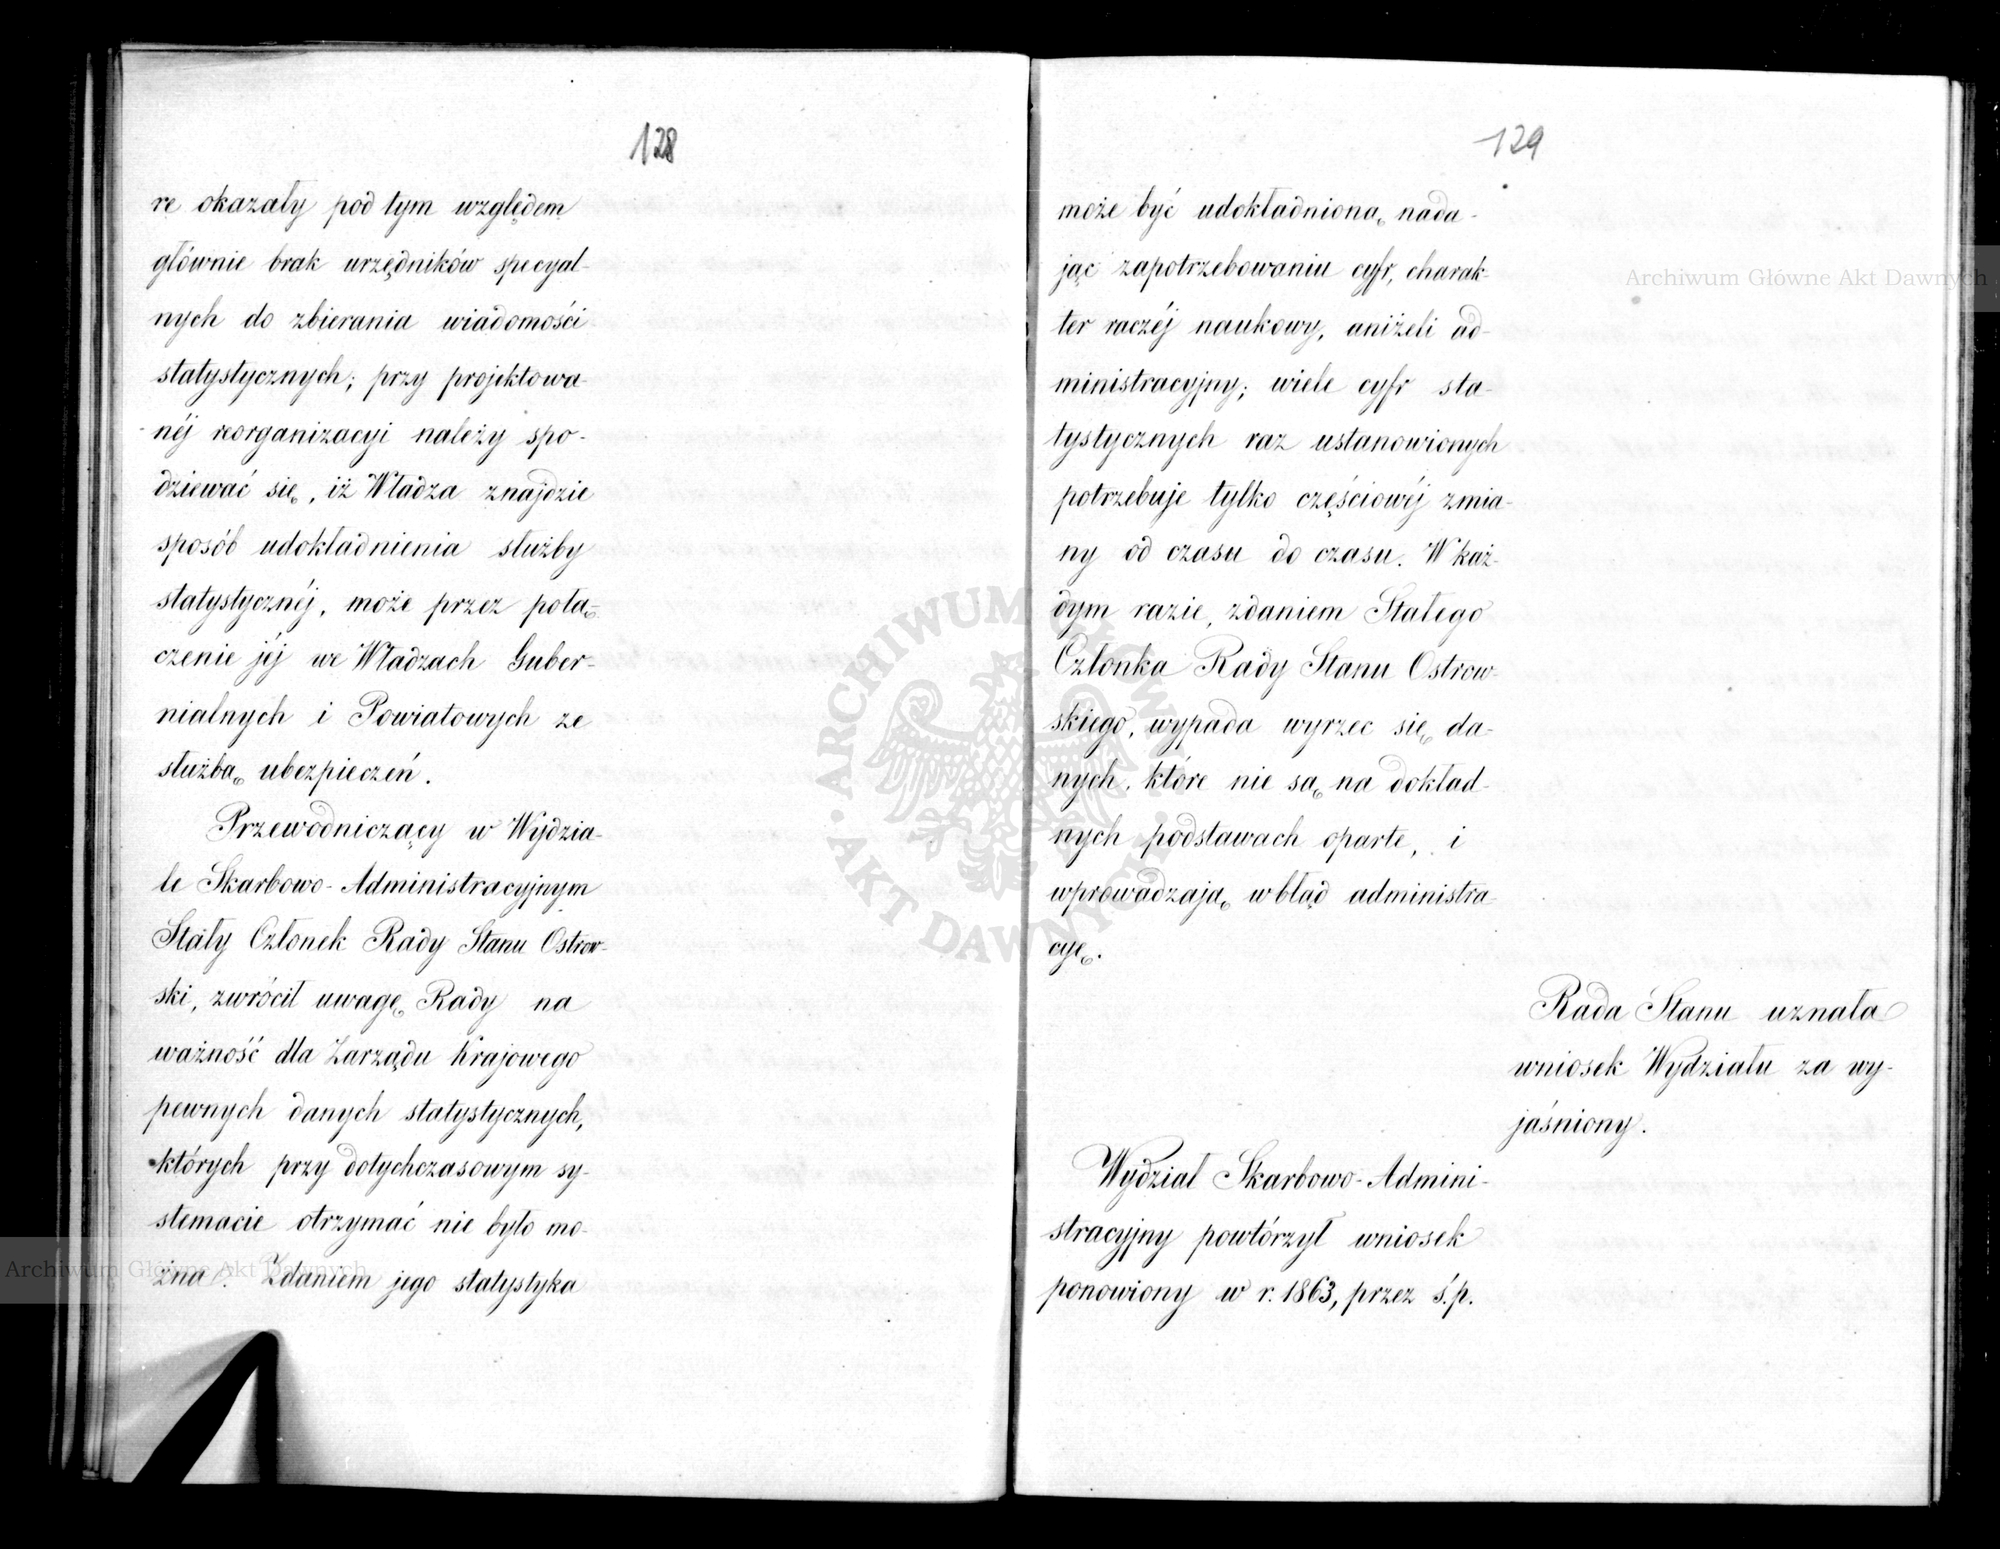 128
re okazały pod tym względem
głównie brak urzędników specyal-
nych do zbierania wiadomości
statystycznych; przy projektowa-
néj reorganizacyi należy spo-
dziewać się, iż Władza znajdzie
sposób udokładnienia służby
statystycznéj, może przez połą-
czenie jéj we Władzach Guber-
nialnych i Powiatowych ze
służbą ubezpieczeń.
Przewodniczący w Wydzia-
le Skarbowo-Administracyjnym
Stały Członek Rady Stanu Ostrow-
ski, zwrócił uwagę Rady na
ważność dla Zarządu Krajowego
pewnych danych statystycznych,
których przy dotychczasowym sy-
stemacie otrzymać nie było mo-
żna. Zdaniem jego statystyka
129
może być udokładnioną nada-
jąc zapotrzebowaniu cyfr, charak-
ter raczéj naukowy, aniżeli ad-
ministracyjny; wiele cyfr sta-
tystycznych raz ustanowionych
potrzebuje tylko częściowéj zmia-
ny od czasu do czasu. W każ-
dym razie, zdaniem Stałego
Członka Rady Stanu Ostrow-
skiego, wypada wyrzec się da-
nych, które nie są na dokład-
nych podstawach oparte, i
wprowadzają w błąd administra-
cyę.
Rada Stanu uznała
wniosek Wydziału za wy-
jaśniony.
Wydział Skarbowo-Admini-
stracyjny powtórzył wniosek
ponowiony w r. 1863, przez ś.p.
Archiwum Główne Akt Dawnych
Archiwum Główne Akt Dawnych
ARCHIWUM GŁÓWNE AKT DAWNYCH